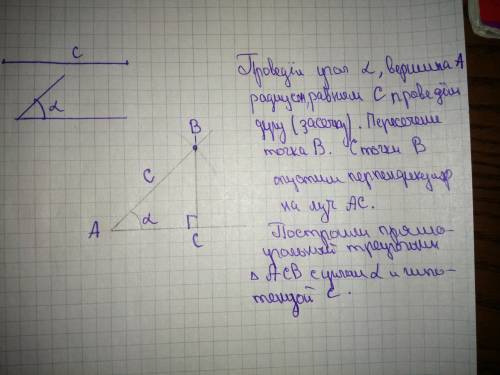 C
α
B
C
A
α
C
Проведём угол α, вершина А
радиусом, равным С проведём
дугу (засечку). Пересечение
точка В. С точки В
опустим перпендикуляр
на луч АС.
Построили прямо-
угольный треугольник
Δ АСВ с углом α и гипо-
тенузой С.